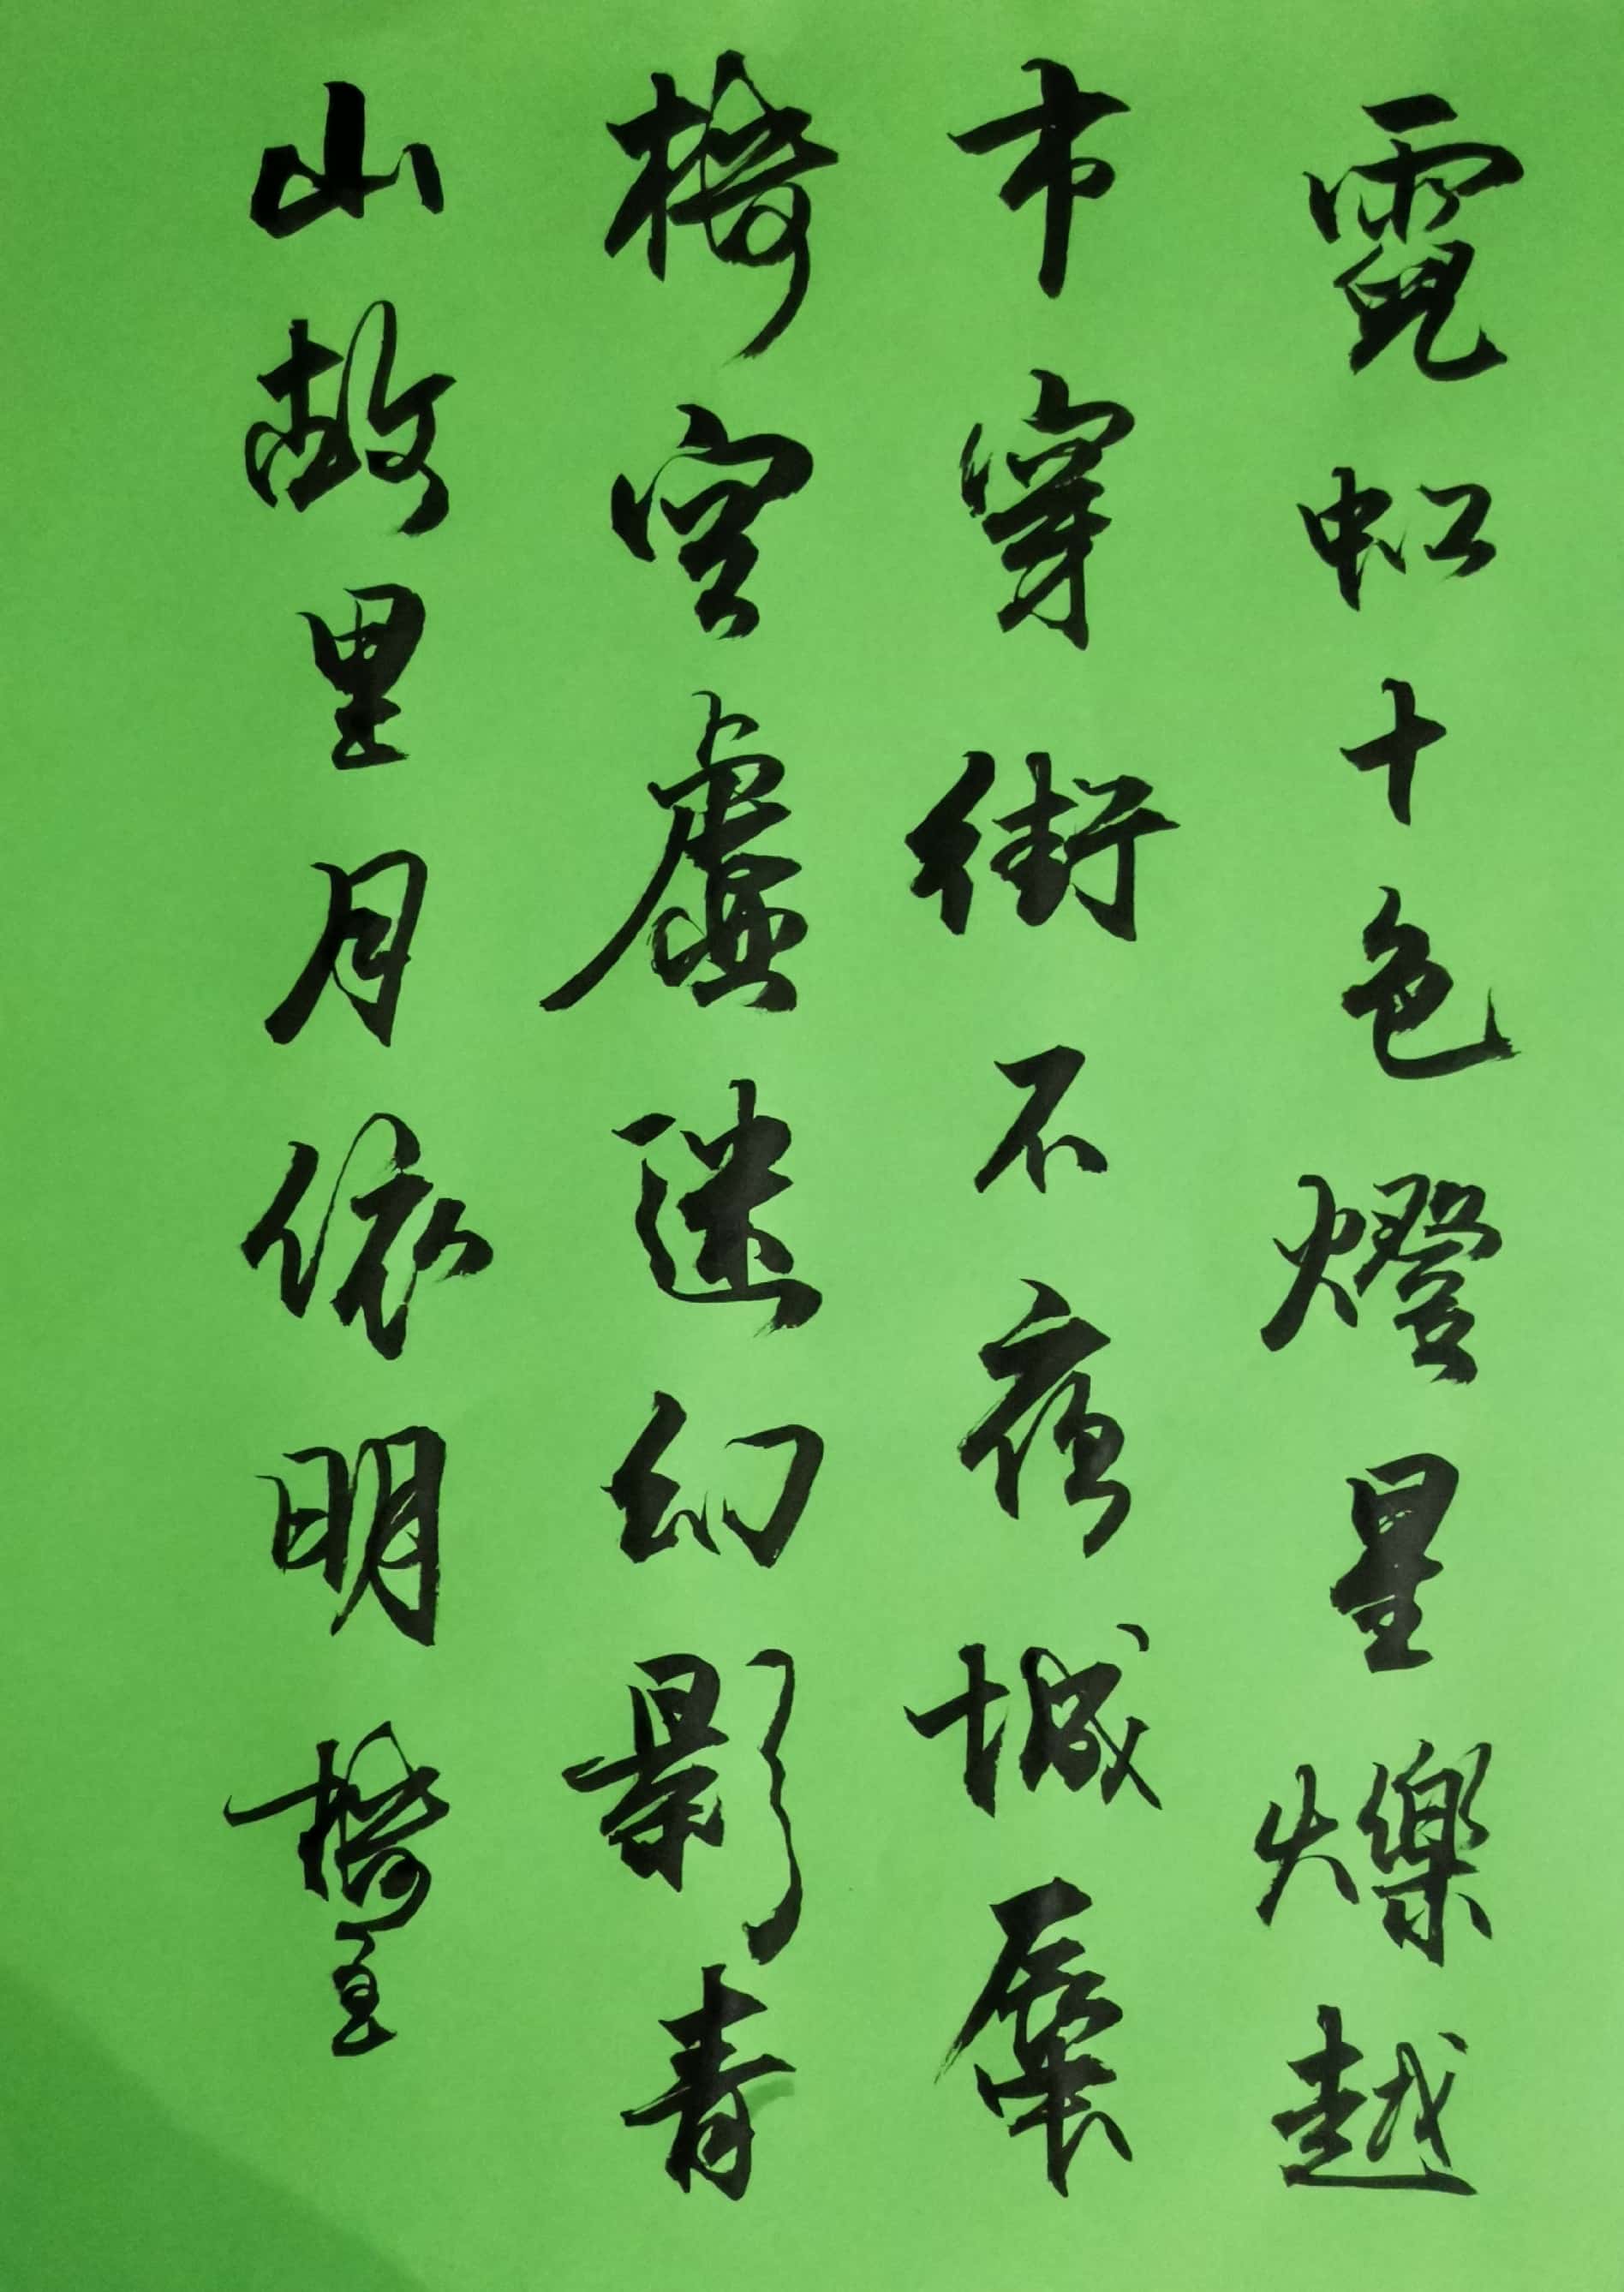 霓虹十色燈星爍越
市穿街不夜城蜃
樓空虛迷幻影青
山故里月依明樓